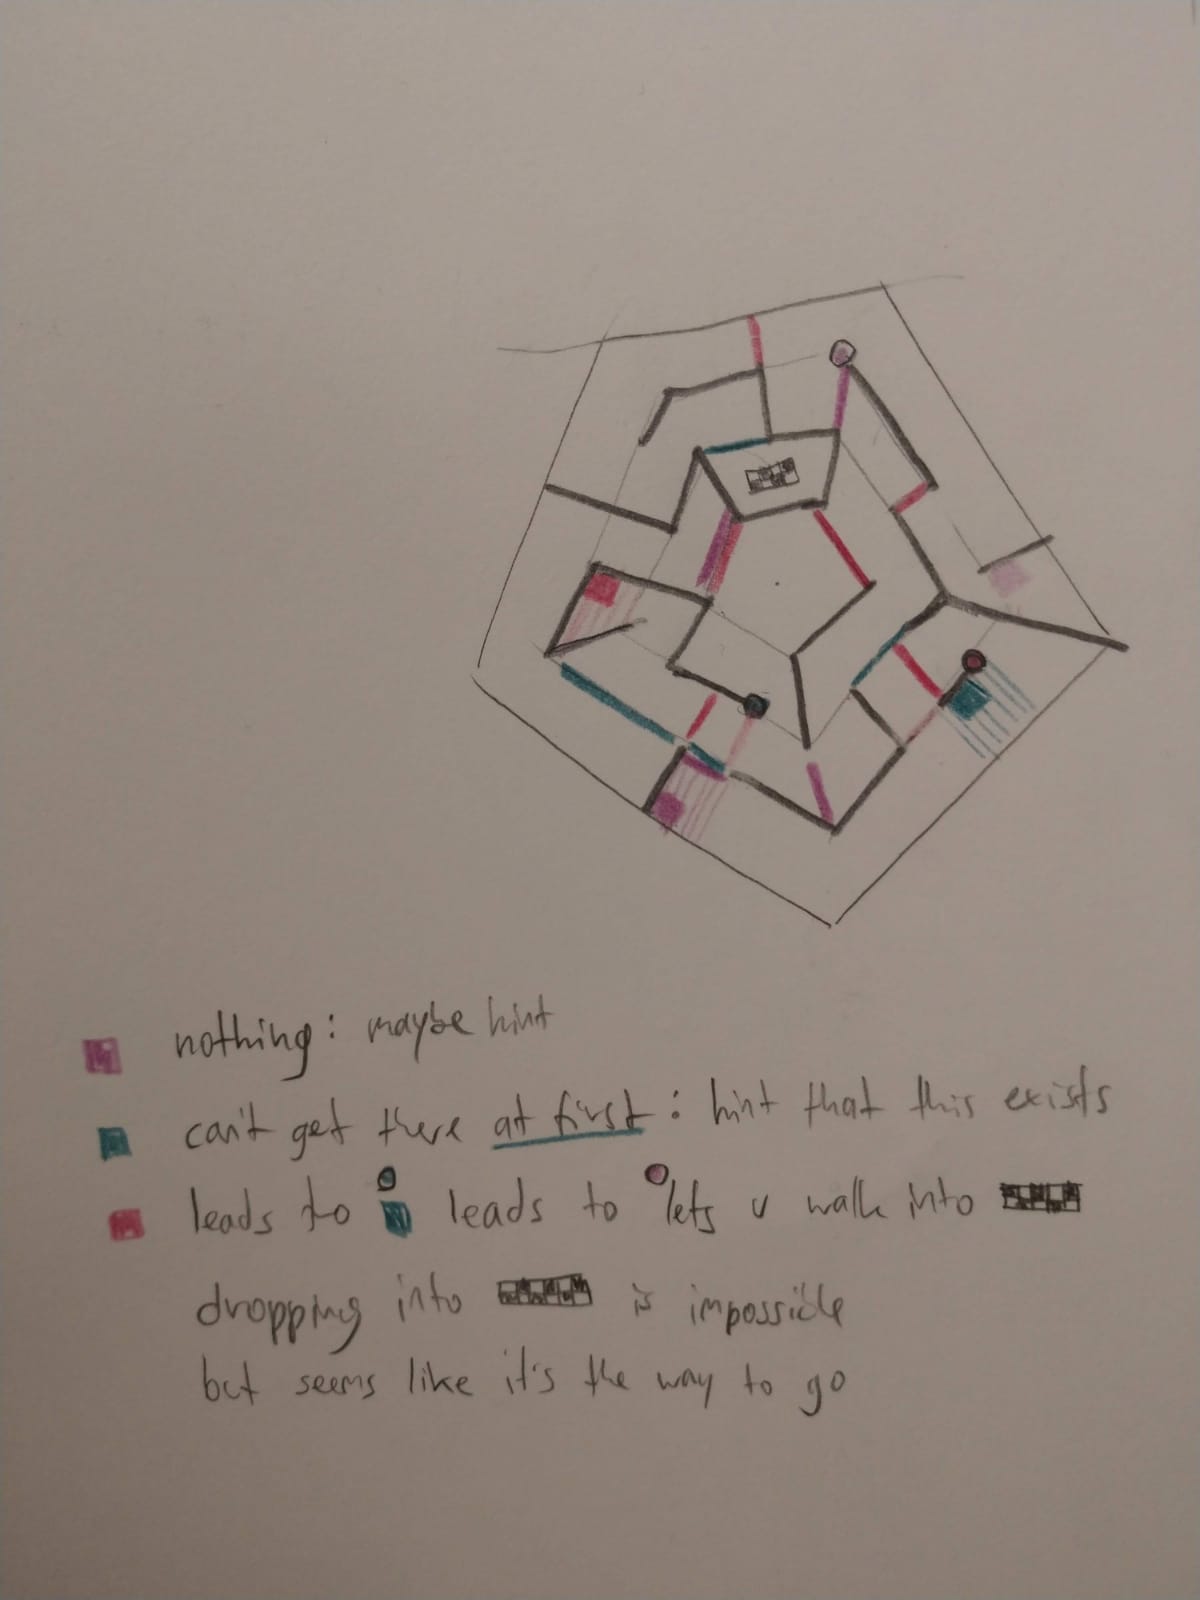 nothing: maybe hint
can't get there at first: hint that this exists
leads to leads to lets u walk into
dropping into is impossible
but seems like it's the way to go